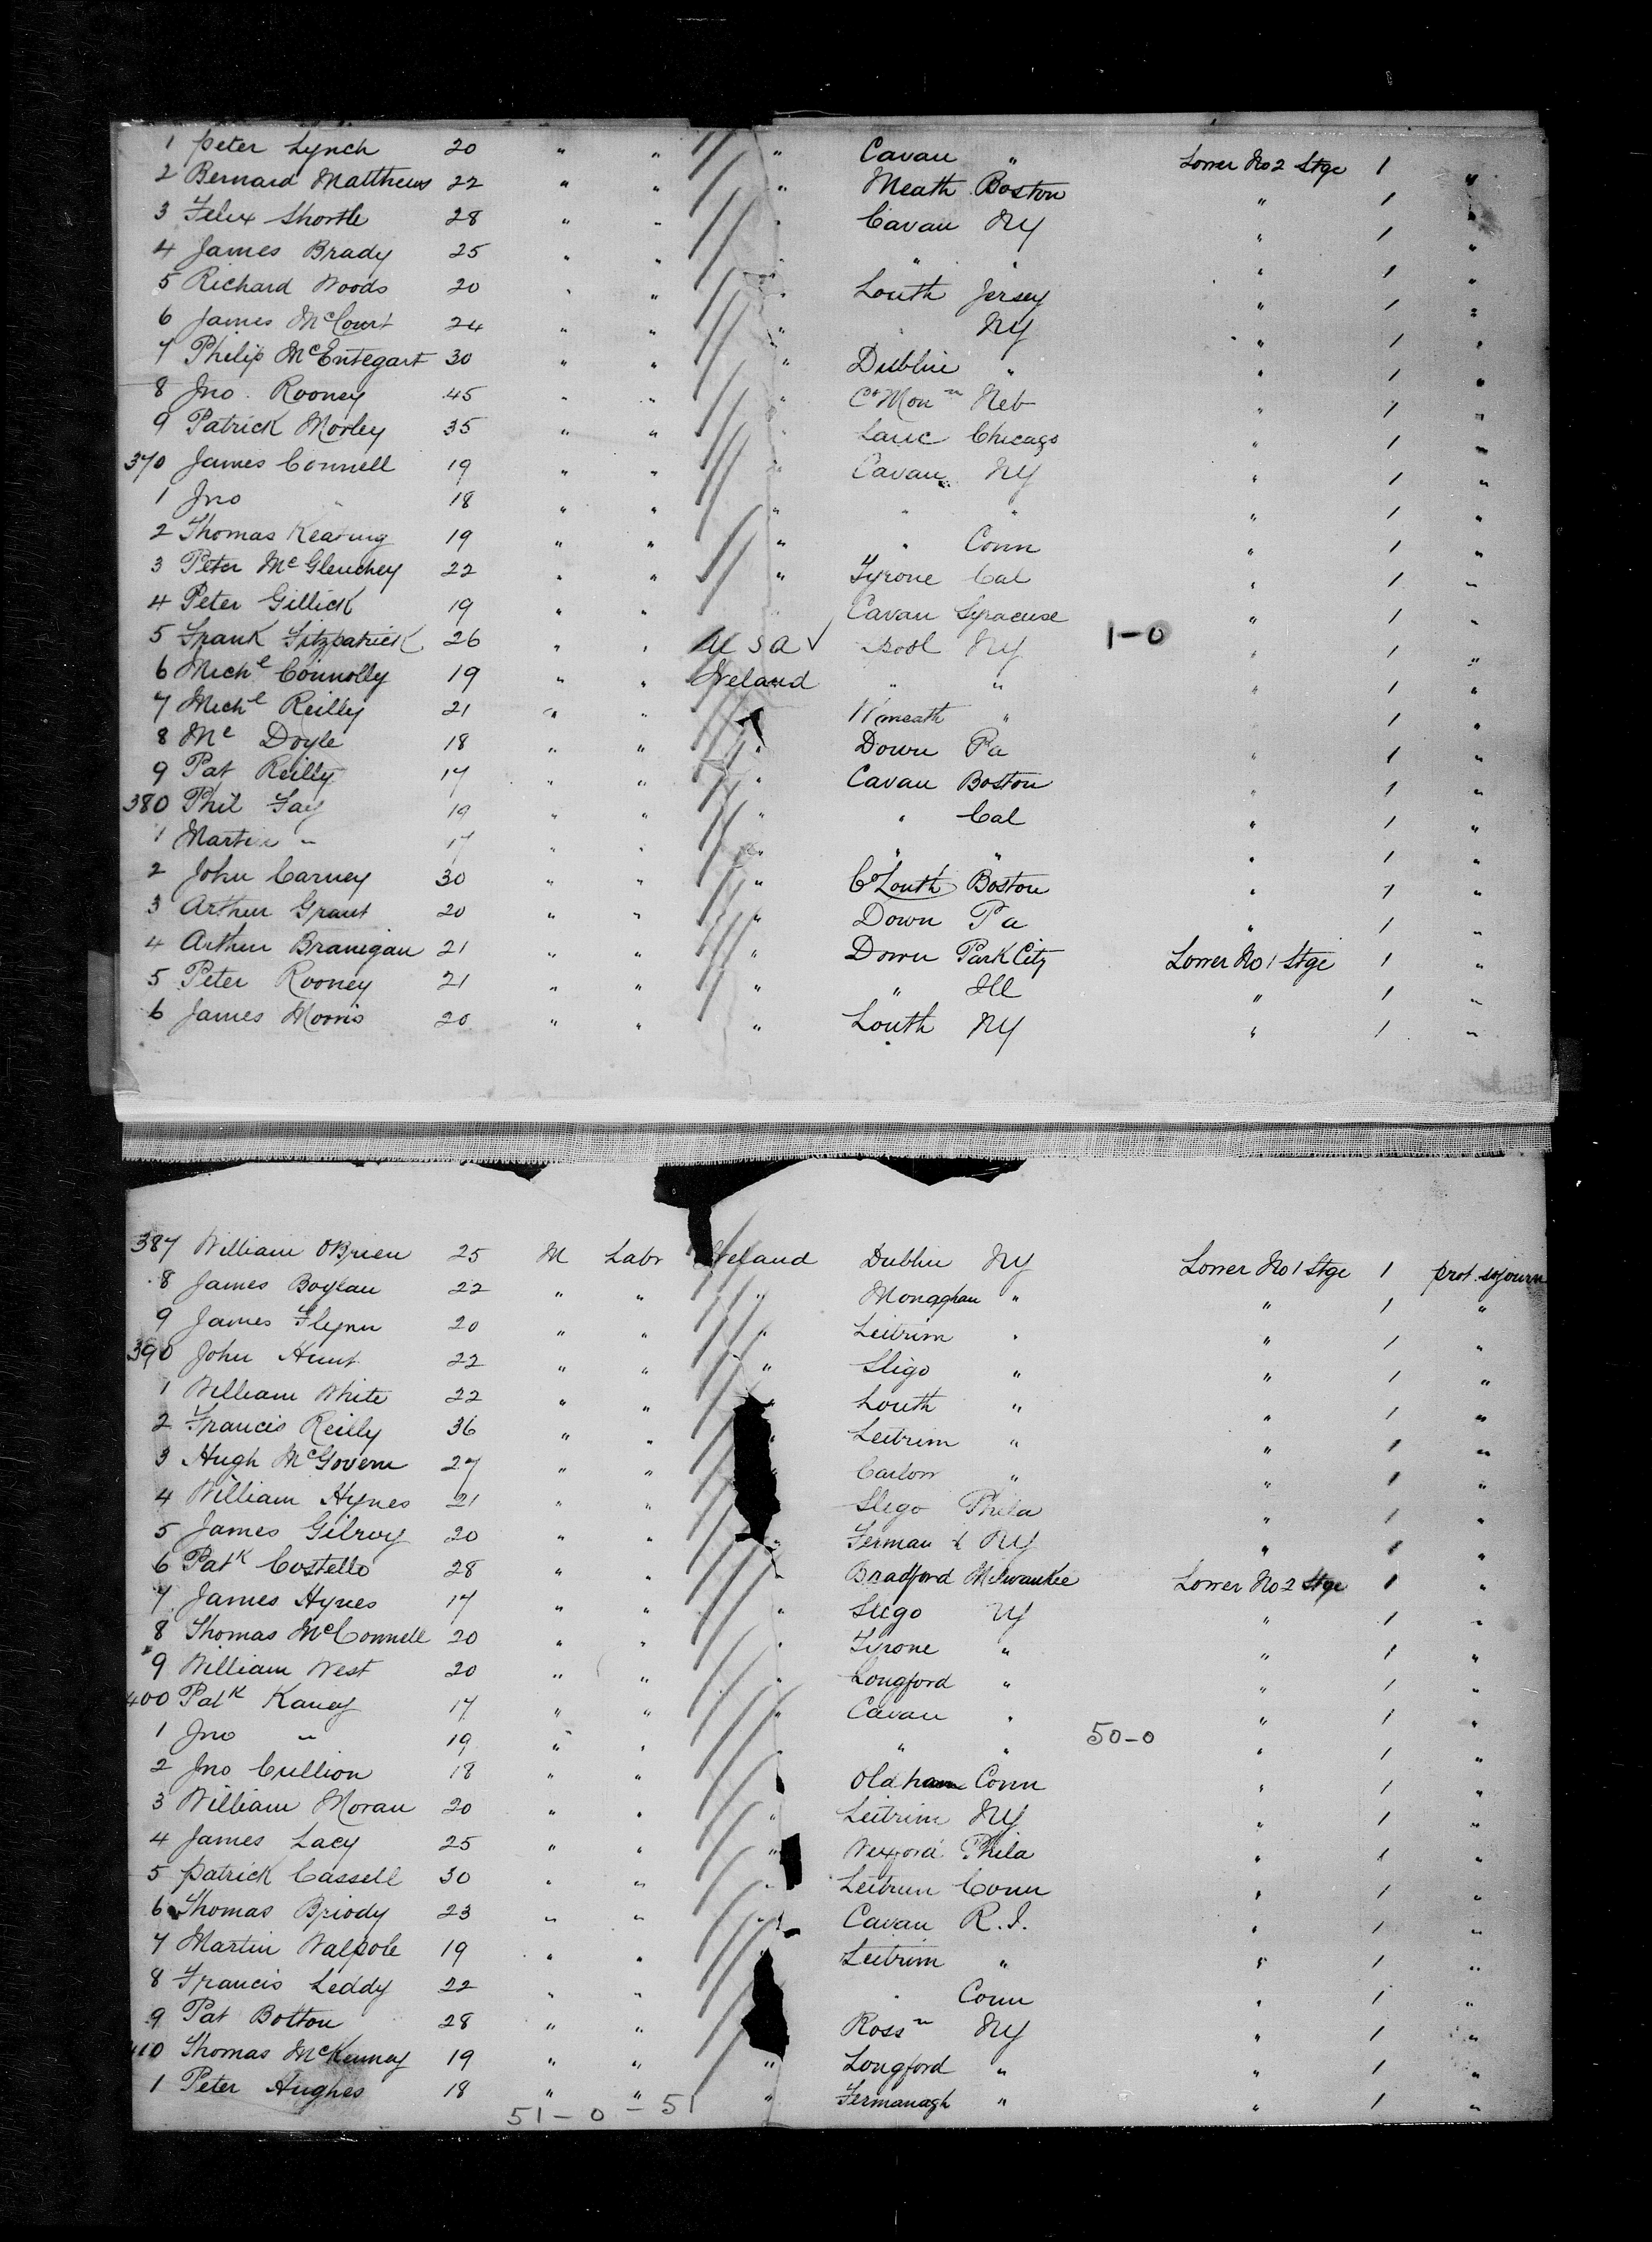 1 Peter Lynch 20 " " " Cavan " Lower No 2 Stge 1 "
2 Bernard Matthews 22 " " " Meath Boston " 1 "
3 Felix Shortle 28 " " " Cavan NY " 1 "
4 James Brady 25 " " " " " " 1 "
5 Richard Woods 20 " " " Louth Jersey " 1 "
6 James McCourt 24 " " " " NY " 1 "
7 Philip McEntegart 30 " " " Dublin " " 1 "
8 Jno. Rooney 45 " " " Co Mon n Neb " 1 "
9 Patrick Morley 35 " " " Lanc Chicago " 1 "
370 James Connell 19 " " " Cavan NY " 1 "
1 Jno " 18 " " " " " " 1 "
2 Thomas Keating 19 " " " " Conn " 1 "
3 Peter McGlenchey 22 " " " Tyrone Cal " 1 "
4 Peter Gillick 19 " " " Cavan Syracuse " 1 "
5 Frank Fitzpatrick 26 " " U S A ✓ Lpool NY 1-0 " 1 "
6 Michl Connolly 19 " " Ireland " " " 1 "
7 Michl Reilly 21 " " W meath " " 1 "
8 Mc Doyle 18 " " " Down Pa " 1 "
9 Pat Reilly 17 " " " Cavan Boston " 1 "
380 Phil Fay 19 " " " " Cal " 1 "
1 Martin " 17 " " " " " " 1 "
2 John Carney 30 " " " Co Louth Boston " 1 "
3 Arthur Grant 20 " " " Down Pa " 1 "
4 Arthur Branigan 21 " " " Down Park City Lower No 1 Stge 1 "
5 Peter Rooney 21 " " " " Ill " 1 "
6 James Morris 20 " " " Louth NY " 1 "
387 William OBrien 25 M Labr Ireland Dublin NY Lower No 1 Stge 1 prot. sojourn
8 James Boylan 22 " " " Monaghan " " 1 "
9 James Flynn 20 " " " Leitrim " " 1 "
390 John Hunt 22 " " " Sligo " " 1 "
1 William White 22 " " " Louth " " 1 "
2 Francis Reilly 36 " " " Leitrim " " 1 "
3 Hugh McGovern 27 " " Carlow " " 1 "
4 William Hynes 21 " " Sligo Phila " 1 "
5 James Gilroy 20 " " " Ferman h NY " 1 "
6 Patk Costello 28 " " " Bradford Milwaukee Lower No 2 Stge 1 "
7 James Hynes 17 " " " Sligo NY " 1 "
8 Thomas McConnell 20 " " " Tyrone " " 1 "
9 William West 20 " " " Longford " " 1 "
400 Patk Kaney 17 " " " Cavan " " 1 "
1 Jno " 19 " " " " " 50-0 " 1 "
2 Jno Cullion 18 " " Oldham Conn " 1 "
3 William Moran 20 " " " Leitrim NY " 1 "
4 James Lacy 25 " " " Wexford Phila " 1 "
5 Patrick Cassell 30 " " " Leitrim Conn " 1 "
6 Thomas Briody 23 " " " Cavan R.I. " 1 "
7 Martin Walpole 19 " " " Leitrim " " 1 "
8 Francis Leddy 22 " " " Conn " 1 "
9 Pat Bolton 28 " " Ross n NY " 1 "
410 Thomas McKenney 19 " " " Longford " " 1 "
1 Peter Hughes 18 " " " Fermanagh " " 1 "
51-0-51